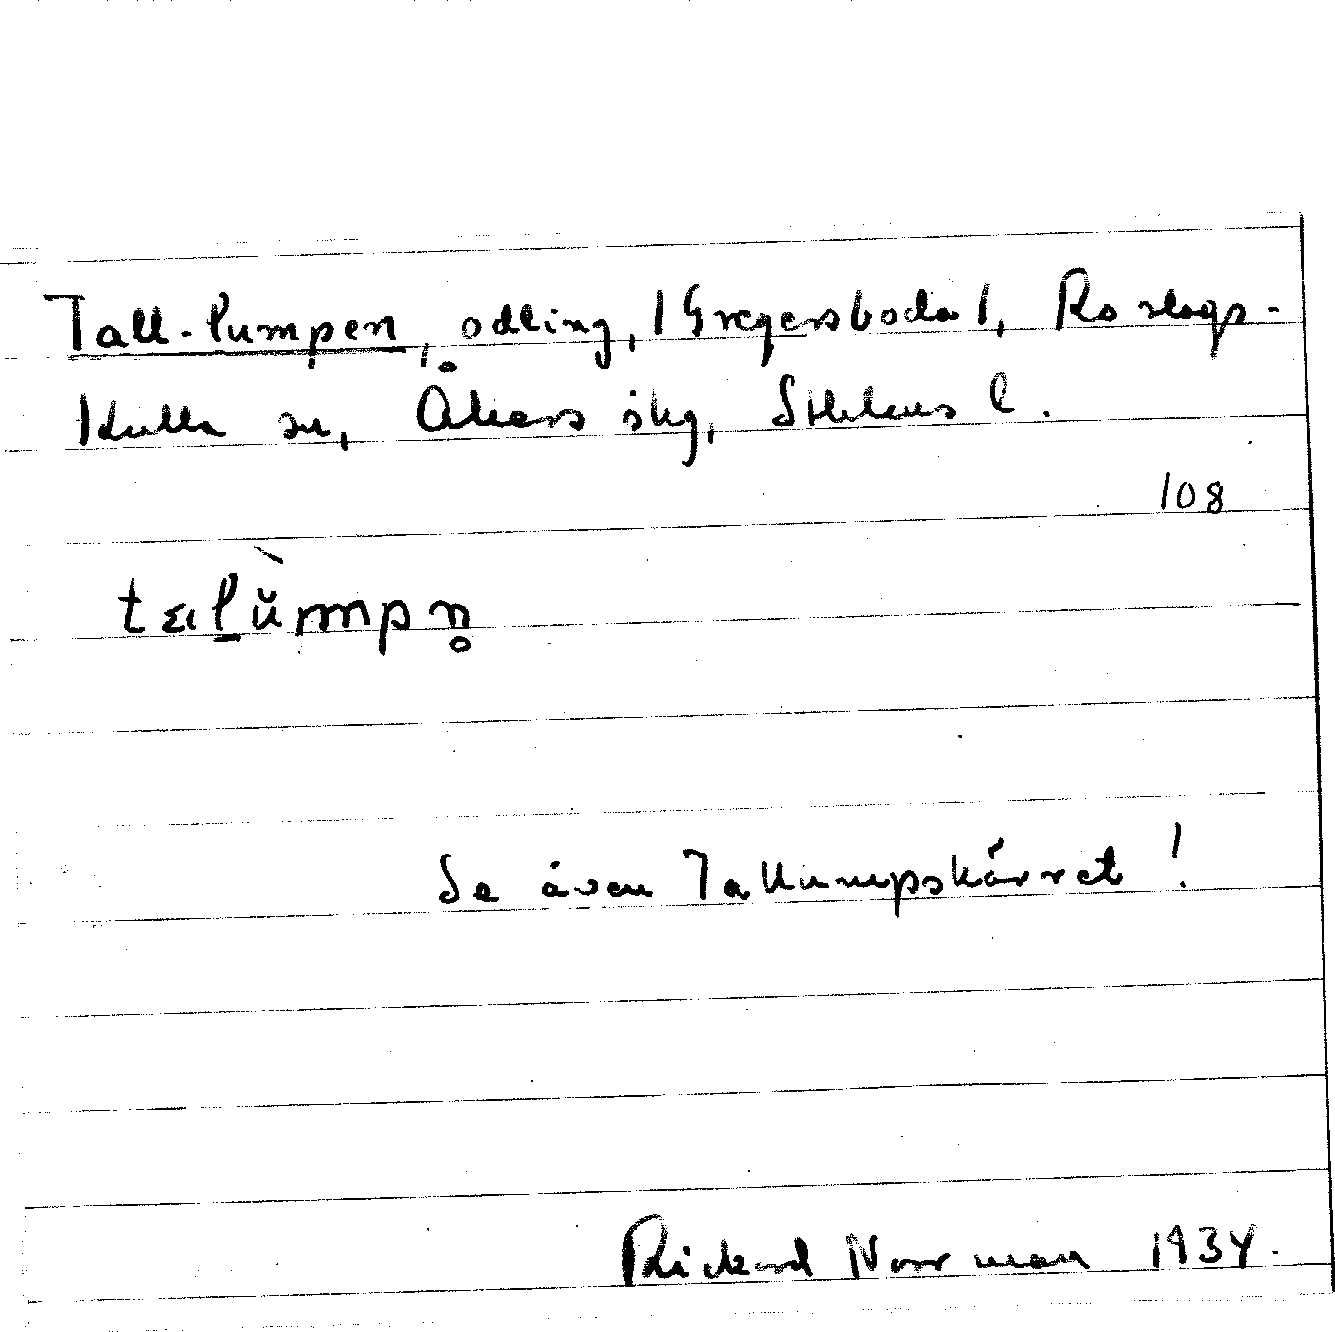 Tall-lumpen, odling, |Gregersboda|, Roslags-
Kulla sn, Åkers skg, Sthlms l.
108
Se även Tallumpskärret!
Rickard Norrman 1934.